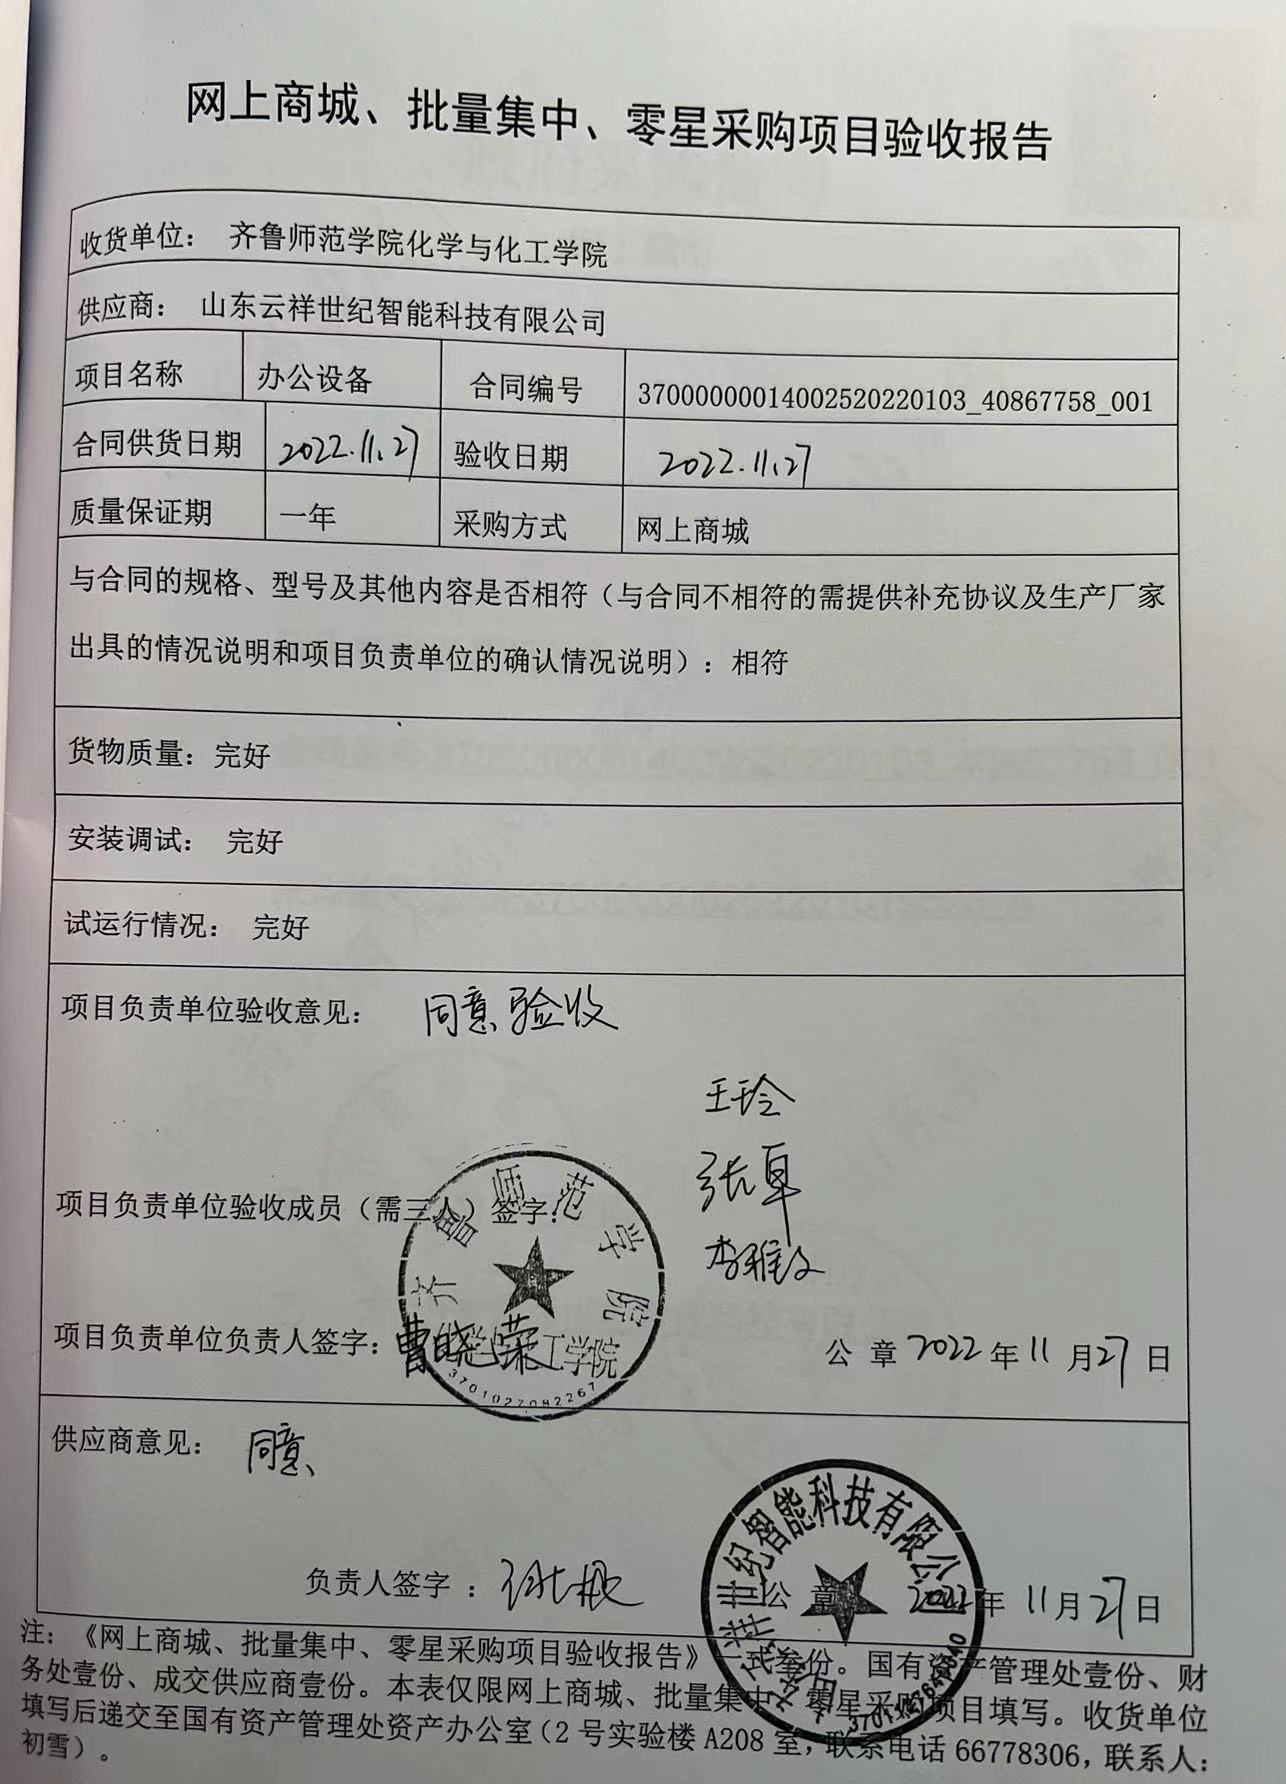 网上商城、批量集中、零星采购项目验收报告
收货单位： 齐鲁师范学院化学与化工学院
供应商： 山东云祥世纪智能科技有限公司
项目名称 办公设备 合同编号 37000000014002520220103_40867758_001
合同供货日期 2022.11.27 验收日期 2022.11.27
质量保证期 一年 采购方式 网上商城
与合同的规格、型号及其他内容是否相符（与合同不相符的需提供补充协议及生产厂家
出具的情况说明和项目负责单位的确认情况说明）：相符
货物质量：完好
安装调试： 完好
试运行情况： 完好
项目负责单位验收意见： 同意验收
王玲
张卓
项目负责单位验收成员（需三人）签字：
李雅文
齐鲁师范学院
项目负责单位负责人签字：曹晓荣
工学院
3701027082267
公 章 2022 年 11 月 27 日
供应商意见： 同意
祥世纪智能科技有限公司
负责人签字 ：
公 章 2022 年 11 月 27 日
注：《网上商城、批量集中、零星采购项目验收报告》一式叁份。国有资产管理处壹份、财
务处壹份、成交供应商壹份。本表仅限网上商城、批量集中、零星采购项目填写。收货单位
填写后递交至国有资产管理处资产办公室（2 号实验楼 A208 室，联系电话 66778306，联系人：
初雪）。